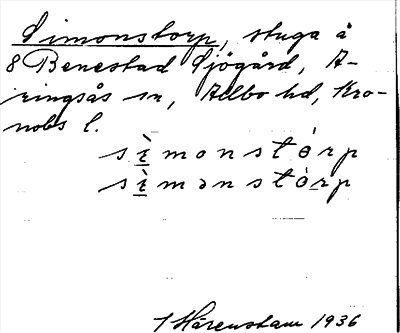 Simonstorp, stuga å
8 Benestad Sjögård, A-
ringsås sn, Allbo hd, Kro-
nobs l.
sìmonstórp
sìmənstórp
Härenstam 1936